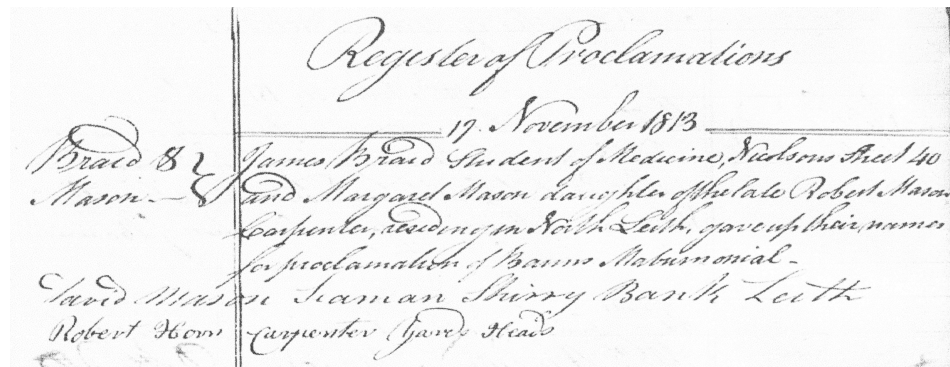 Register of Proclamations
17. November 1813
Braid & James Braid Student of Medicine, Nicolsons Street 40
Mason and Margaret Mason daughter of the late Robert Mason
Carpenter, residing in North Leith, gave up their names
for proclamation of Banns Matrimonial
David Mason Seaman Shirry Bank Leith
Robert Horn Carpenter